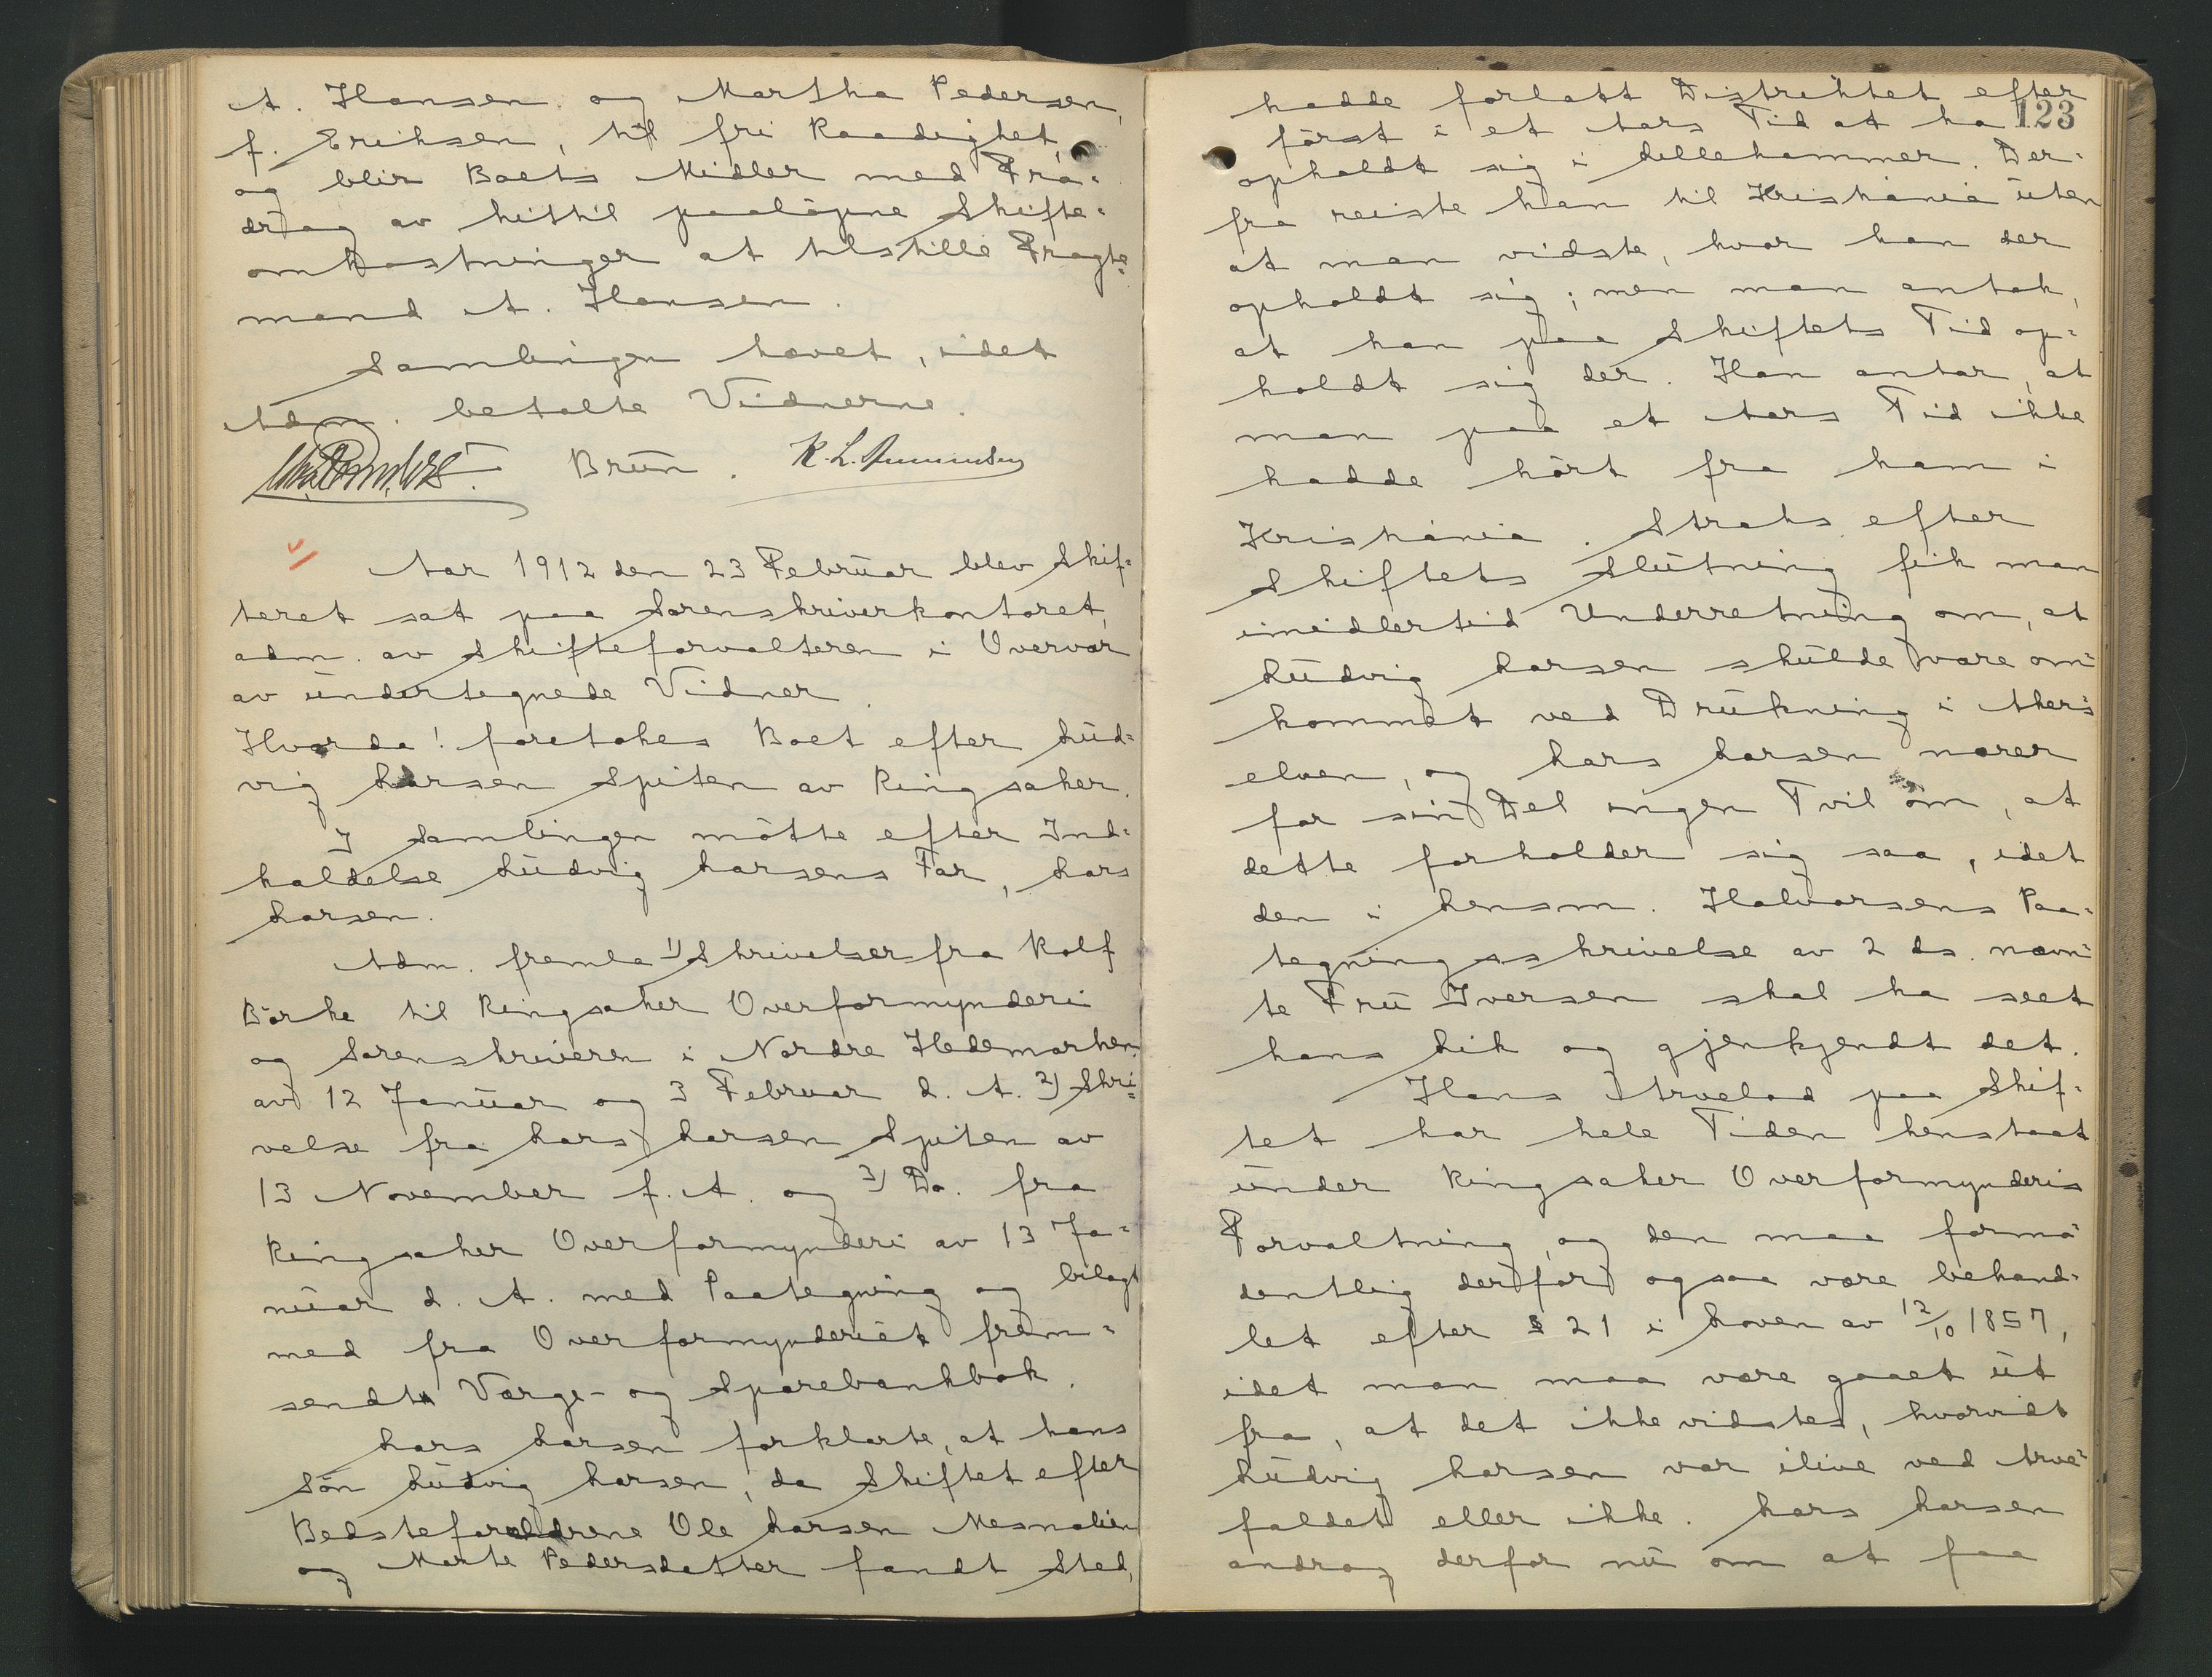 A. Hansen og Martha Pedersen,
f. Eriksen, til fri Raadighet,
og blir Boets Midler med Fra-
drag av hittil paaløpne Skifte-
omkostninger at tilstille Fragte-
mand A. Hansen.
Samlingen hævet, idet
Adm. betalte Vidnerne.
Brun. K. L. Amundsen
Aar 1912 den 23 Februar blev Skif-
teret sat paa Sorenskriverkontoret,
adm. av Skifteforvalteren i Overvær
av undertegnede Vidner.
Hvorda! foretokes Boet efter Lud-
vig Larsen Spiten av Ringsaker.
I Samlingen møtte efter Ind-
kaldelse Ludvig Larsens Far, Lars
Larsen.
Adm. fremla 1) Skrivelser fra Rolf
Børke til Ringsaker Overformynderi
og Sorenskriveren i Nordre Hedemarken
av 12 Januar og 3 Februar d. A. 2) Skri-
velse fra Lars Larsen Spiten av
13 November f. A. og 3) Do. fra
Ringsaker Overformynderi av 13 Ja-
nuar d. A. med Paategning og bilagt
med fra Overformynderiet frem-
sendt Værge- og Sparebankbok.
Lars Larsen forklarte, at hans
Søn Ludvig Larsen, da Skiftet efter
Bedsteforældrene Ole Larsen Mesnalien
og Marte Pedersdatter fandt Sted,
123
hadde forlatt Distriktet efter
først i et Aars Tid at ha
opholdt sig i Lillehammer. Der-
fra reiste han til Kristiania uten
at man vidste, hvor han der
opholdt sig; men man antok,
at han paa Skiftets Tid op-
holdt sig der. Han antar, at
man paa et Aars Tid ikke
hadde hørt fra ham i
Kristiania. Straks efter
Skiftets Slutning fik man
imidlertid Underretning om, at
Ludvig Larsen skulde være om-
kommet ved Drukning i Akers-
elven, og Lars Larsen nærer
for sin Del ingen Tvil om, at
dette forholder sig saa, idet
den i Lensm. Halvorsens Paa-
tegningsskrivelse av 2 ds. nævn-
te Fru Iversen skal ha seet
hans Lik og gjenkjendt det.
Hans Arvelod paa Skif-
tet har hele Tiden henstaat
under Ringsaker Overformynderis
Forvaltning, og den maa formo-
dentlig derfor ogsaa være behand-
let efter § 21 i Loven av 12/10 1857,
idet man maa være gaaet ut
fra, at det ikke vidstes, hvorvidt
Ludvig Larsen var ilive ved Arve-
faldet eller ikke. Lars Larsen
androg derfor nu om at faa